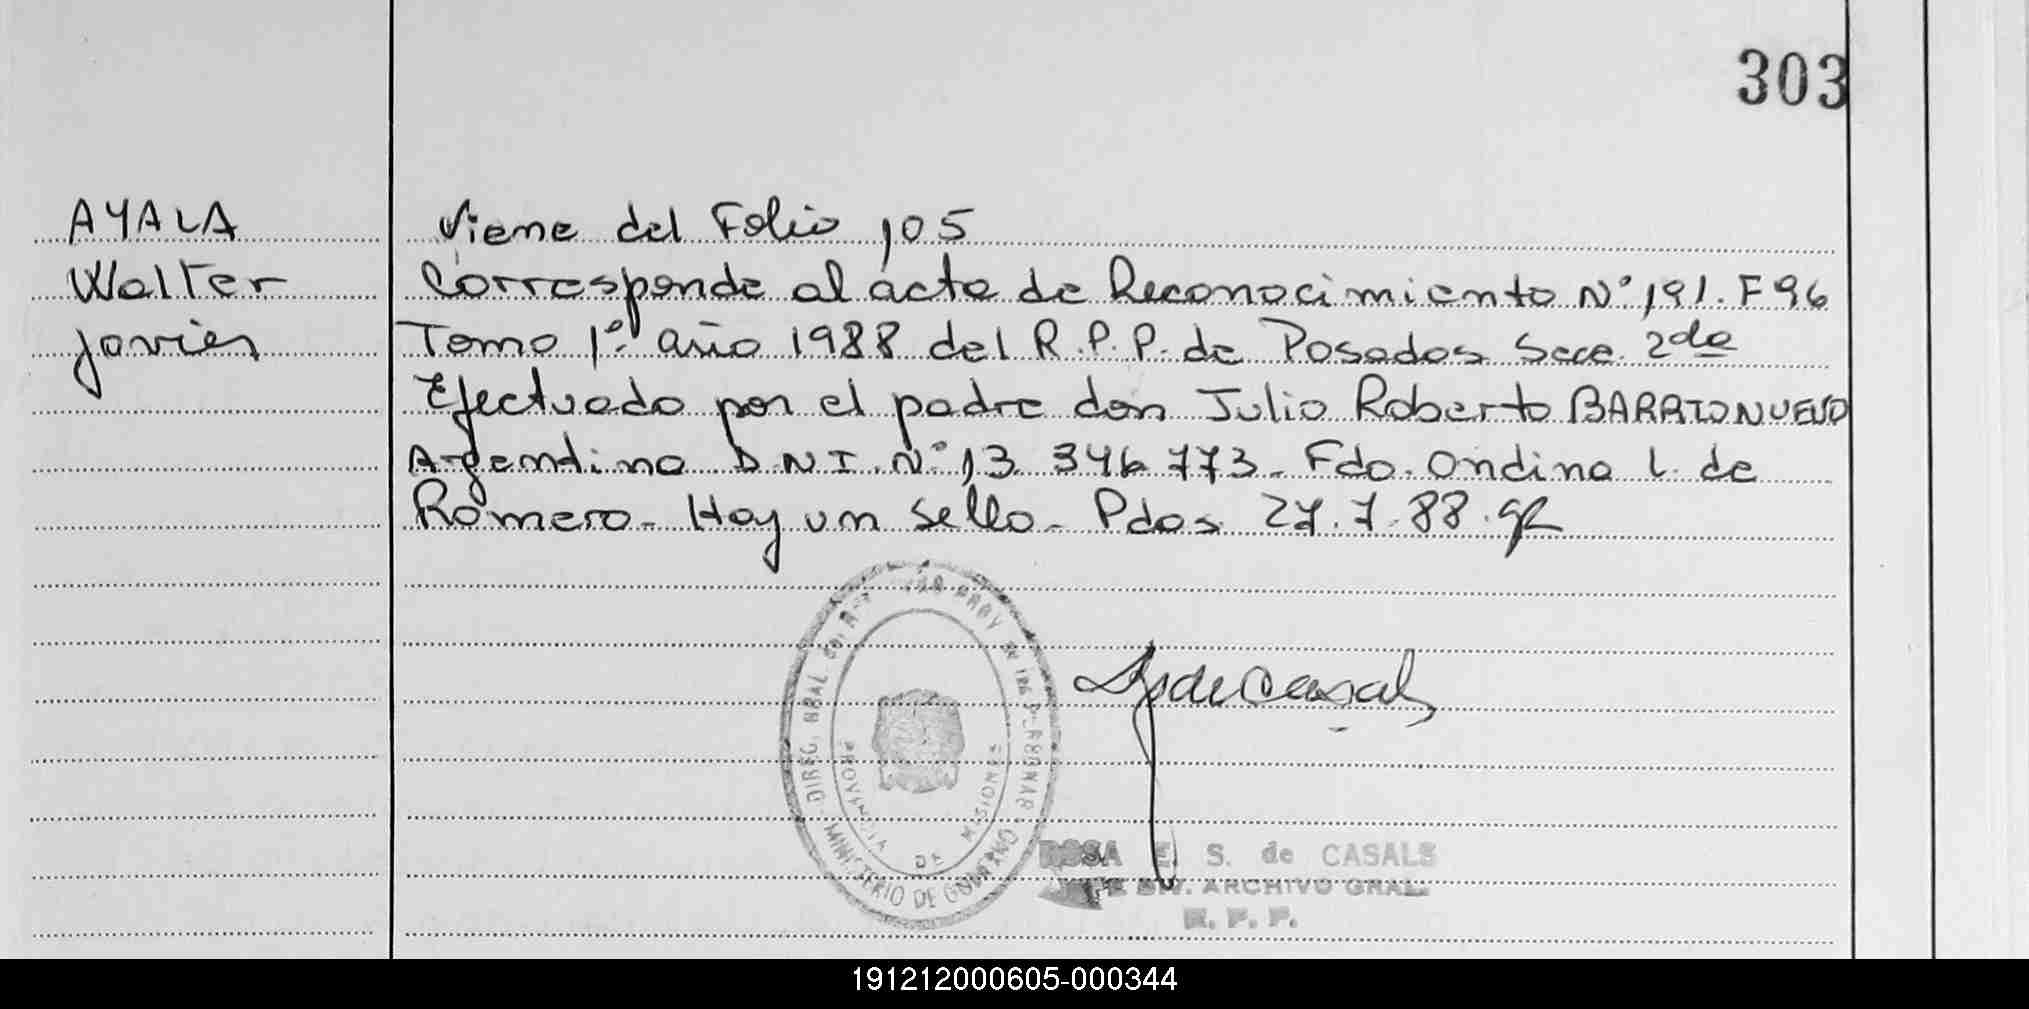 303
AYALA
Walter
Javier
Viene del Folio 105
Corresponde al acta de Reconocimiento Nº 191. F 96
Tomo 1º año 1988 del R.P.P. de Posadas Secc. 2da
Efectuado por el padre don Julio Roberto BARRIONUEVO
Argentino D.N.I. Nº 13.346.773. Fdo. Ondina L. de
Romero. Hay un sello. Pdas. 27.7.88.
de Casals
PROVINCIA DE MISIONES
MINISTERIO DE GOBIERNO
ROSA E. S. de CASALS
DIV. ARCHIVO GRAL.
R. P. P.
191212000605-000344